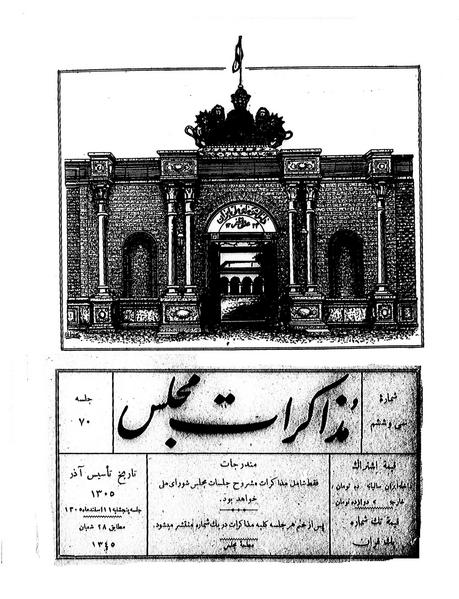 شمارهٔ
سی و ششم
مذاکرات مجلس
جلسه
۷۰
قیمة اشتراك
داخله ایران سالیانه ده تومان
خارجه » دوازده تومان
قیمة تك شماره
یك قران
مندرجات
فقط شامل مذاکرات مشروح جلسات مجلس شورای ملی
خواهد بود.
پس از ختم هر جلسه کلیه مذاکرات در یك شماره منتشر میشود.
مطبعهٔ مجلس
تاریخ تأسیس آذر
۱۳۰۵
جلسه پنجشنبه ۱۱ اسفند ماه ۱۳۰۵
مطابق ۲۸ شعبان
۱۳۴۵